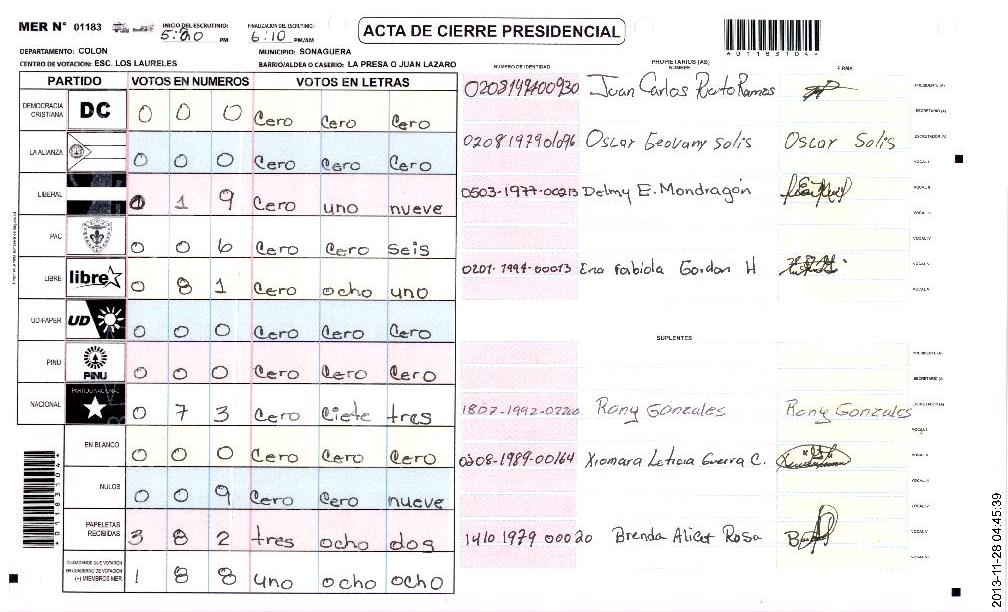 MER N° 01183
INICIO DEL ESCRUTINIO: 5:20 PM
FINALIZACION DEL ESCRUTINIO: 6:10 PM/AM
ACTA DE CIERRE PRESIDENCIAL
*01183104*
DEPARTAMENTO: COLON
MUNICIPIO: SONAGUERA
CENTRO DE VOTACION: ESC. LOS LAURELES
BARRIO/ALDEA O CASERIO: LA PRESA O JUAN LAZARO
PARTIDO VOTOS EN NUMEROS VOTOS EN LETRAS
DEMOCRACIA CRISTIANA DC 0 0 0 Cero Cero Cero
LA ALIANZA 0 0 0 Cero Cero Cero
LIBERAL 0 1 9 Cero uno nueve
PAC 0 0 6 Cero Cero seis
LIBRE libre 0 8 1 Cero ocho uno
UD-FAPER UD 0 0 0 Cero Cero Cero
PINU PINU 0 0 0 Cero Cero Cero
NACIONAL PARTIDO NACIONAL 0 7 3 Cero Ciete tres
EN BLANCO 0 0 0 Cero Cero Cero
NULOS 0 0 9 Cero Cero nueve
PAPELETAS RECIBIDAS 3 8 2 tres ocho dos
CIUDADANOS QUE VOTARON EN CUADERNO DE VOTACION (+) MIEMBROS MER 1 8 8 uno ocho ocho
*01183104*
PROPIETARIOS (AS)
NUMERO DE IDENTIDAD NOMBRE FIRMA
Juan Carlos Ramos PRESIDENTE (A)
SECRETARIO (A)
Oscar Geovany Solis Oscar Solis ESCRUTADOR (A)
VOCAL I
0503-1977-00213 Delmy E. Mondragón VOCAL II
VOCAL III
VOCAL IV
0201-1994-00073 Ena Fabiola Gordon H VOCAL V
SUPLENTES
PRESIDENTE (A)
SECRETARIO (A)
1807-1992-02200 Rony Gonzales Rony Gonzales ESCRUTADOR (A)
VOCAL I
0208-1989-00164 Xiomara Leticia Guerra C. VOCAL II
VOCAL III
VOCAL IV
1410 1979 00020 Brenda Alicet Rosa VOCAL V
2013-11-28 04:45:39